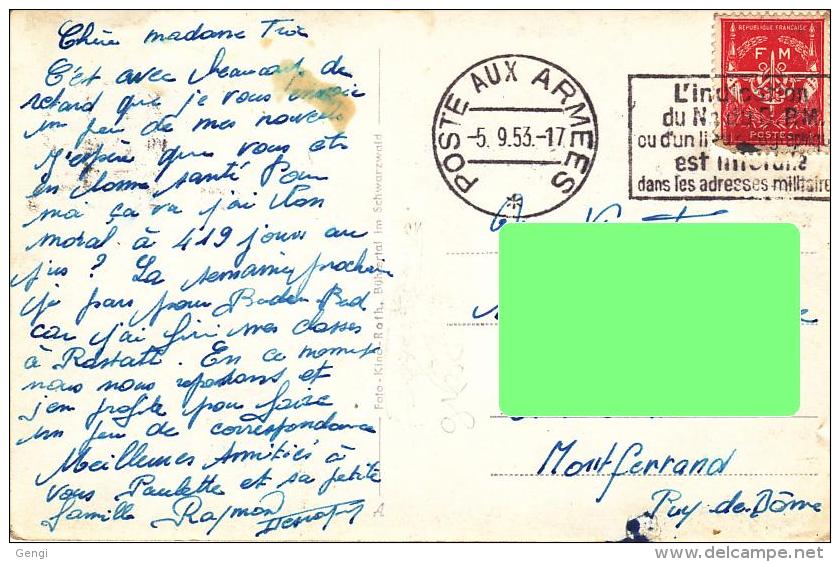 Chère madame
C'est avec beaucoup de
retard que je vous envoie
un peu de mes nouvelles
J'espère que vous êtes
en bonne santé Pour
moi ça va j'ai bon
moral à 419 jours au
jus ? La semaine prochaine
je pars pour Baden Bad
car j'ai fini mes classes
à Rastatt. En ce moment
nous nous reposons et
j'en profite pour faire
un peu de correspondance
Meilleures Amitiés à
vous Paulette et sa petite
famille Raymond
Foto-Kino-Roth, Bühlertal im Schwarzwald
A
POSTE AUX ARMEES
-5. 9.53.-17
*
REPUBLIQUE FRANÇAISE
F M
POSTES
L'indication
du No P.M.
ou d'un lieu
est interdite
dans les adresses militaire
Montferrand
Puy-de-Dôme
Gengi
www.delcampe.net